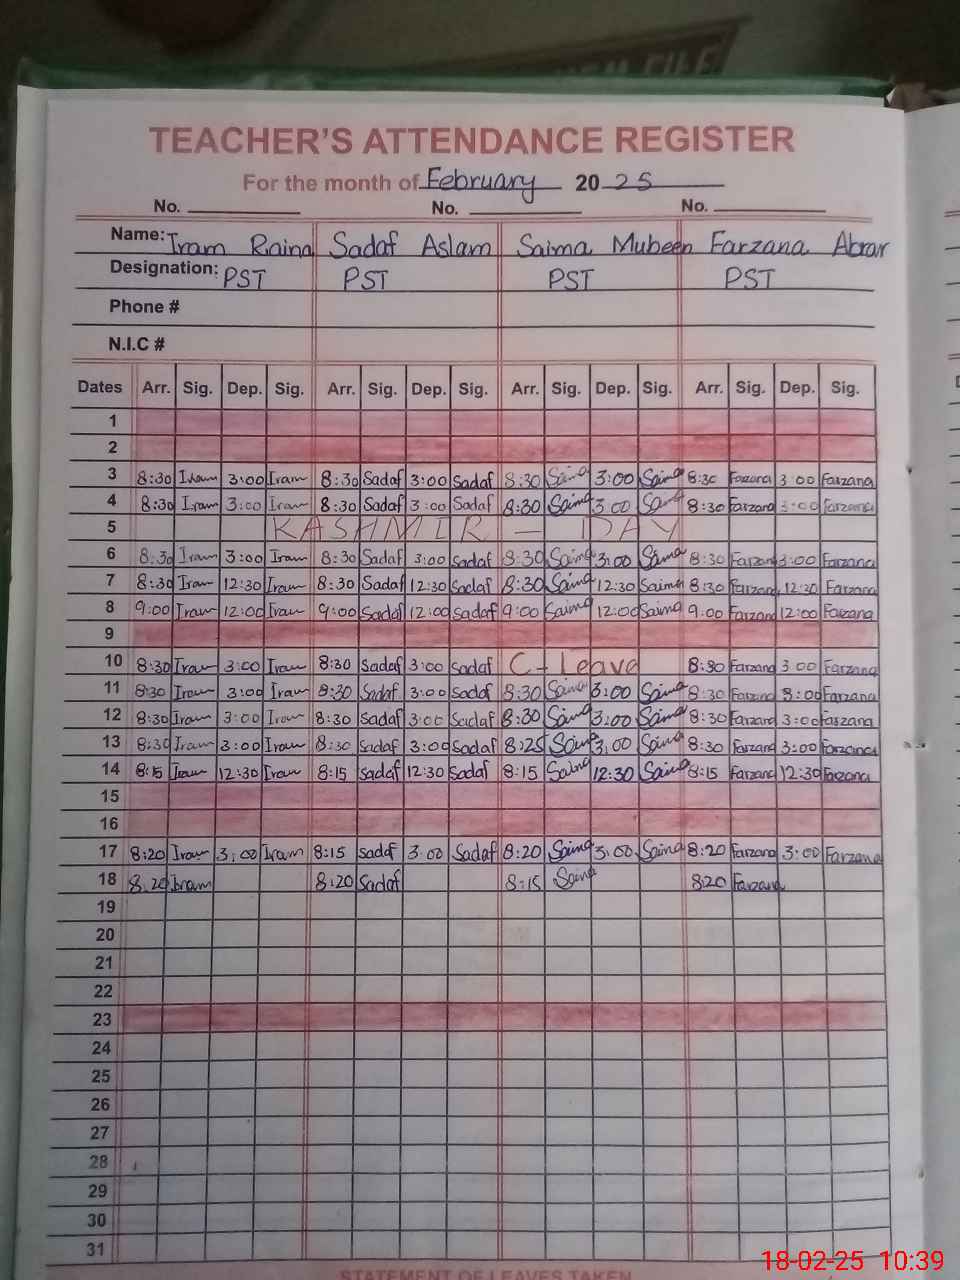 TEACHER'S ATTENDANCE REGISTER
For the month of February 20 25
No. No. No.
Name: Iram Raina Sadaf Aslam Saima Mubeen Farzana Abrar
Designation: PST PST PST PST
Phone #
N.I.C #
Dates Arr. Sig. Dep. Sig. Arr. Sig. Dep. Sig. Arr. Sig. Dep. Sig. Arr. Sig. Dep. Sig.
1
2
3 8:30 Iram 3:00 Iram 8:30 Sadaf 3:00 Sadaf 8:30 Saima 3:00 Saima 8:30 Farzana 3:00 Farzana
4 8:30 Iram 3:00 Iram 8:30 Sadaf 3:00 Sadaf 8:30 Saima 3:00 Saima 8:30 Farzana 3:00 Farzana
5 KASHMIR - DAY
6 8:30 Iram 3:00 Iram 8:30 Sadaf 3:00 Sadaf 8:30 Saima 3:00 Saima 8:30 Farzana 3:00 Farzana
7 8:30 Iram 12:30 Iram 8:30 Sadaf 12:30 Sadaf 8:30 Saima 12:30 Saima 8:30 Farzana 12:30 Farzana
8 9:00 Iram 12:00 Iram 9:00 Sadaf 12:00 Sadaf 9:00 Saima 12:00 Saima 9:00 Farzana 12:00 Farzana
9
10 8:30 Iram 3:00 Iram 8:30 Sadaf 3:00 Sadaf C - Leave 8:30 Farzana 3:00 Farzana
11 8:30 Iram 3:00 Iram 8:30 Sadaf 3:00 Sadaf 8:30 Saima 3:00 Saima 8:30 Farzana 3:00 Farzana
12 8:30 Iram 3:00 Iram 8:30 Sadaf 3:00 Sadaf 8:30 Saima 3:00 Saima 8:30 Farzana 3:00 Farzana
13 8:30 Iram 3:00 Iram 8:30 Sadaf 3:00 Sadaf 8:25 Saima 3:00 Saima 8:30 Farzana 3:00 Farzana
14 8:15 Iram 12:30 Iram 8:15 Sadaf 12:30 Sadaf 8:15 Saima 12:30 Saima 8:15 Farzana 12:30 Farzana
15
16
17 8:20 Iram 3:00 Iram 8:15 Sadaf 3:00 Sadaf 8:20 Saima 3:00 Saima 8:20 Farzana 3:00 Farzana
18 8:20 Iram 8:20 Sadaf 8:15 Saima 8:20 Farzana
19
20
21
22
23
24
25
26
27
28
29
30
31
STATEMENT OF LEAVES TAKEN
18-02-25 10:39